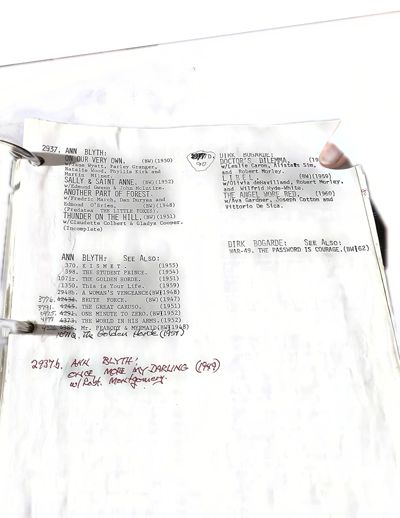 2937. ANN BLYTH:
ON OUR VERY OWN. (BW)(1950)
w/Jane Wyatt, Farley Granger,
Natalie Wood, Phyllis Kirk and
Martin Milner.
SALLY & SAINT ANNE. (BW)(1952)
w/Edmund Gwenn & John McIntire.
ANOTHER PART OF FOREST.
w/Fredric March, Dan Duryea and
Edmond O'Brien. (BW)(1948)
(Predates THE LITTLE FOXES)
THUNDER ON THE HILL. (BW)(1951)
w/Claudette Colbert & Gladys Cooper.
(Incomplete)
ANN BLYTH: SEE ALSO:
370. K I S M E T. (1955)
398. THE STUDENT PRINCE. (1954)
1071r. THE GOLDEN HORDE. (1951)
1350. This is Your Life. (1959)
2948b. A WOMAN'S VENGEANCE(BW)(1948)
BRUTE FORCE. (BW)(1947)
4245. THE GREAT CARUSO. (1951)
4291. ONE MINUTE TO ZERO.(BW)(1952)
4373. THE WORLD IN HIS ARMS.(1952)
Mr. PEABODY & MERMAID(BW)(1948)
The Golden Horde (1951)
2937b. ANN BLYTH:
ONCE MORE MY DARLING (1949)
w/Robt. Montgomery.
DIRK BOGARDE:
DOCTOR'S DILEMMA.
w/Leslie Caron, Alistair Sim,
and Robert Morley.
L I B E L. (BW)(1959)
w/Olivia deHavilland, Robert Morley,
and Wilfrid Hyde-White.
THE ANGEL WORE RED. (1960)
w/Ava Gardner, Joseph Cotton and
Vittorio De Sica.
DIRK BOGARDE: SEE ALSO:
WAR-49. THE PASSWORD IS COURAGE.(BW)(62)